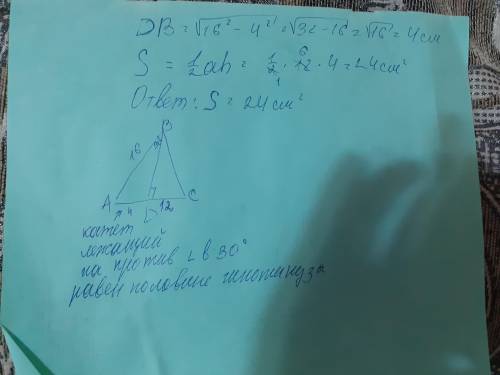 DB = √16² - 4² = √32 - 16 = √16 = 4 см
S = 1/2 ah = 1/2 · 12 · 4 = 24 см²
6
1
Ответ: S = 24 см²
B
16
A
C
4
D
12
катет
лежащий
на против ∠ в 30°
равен половине гипотинуза